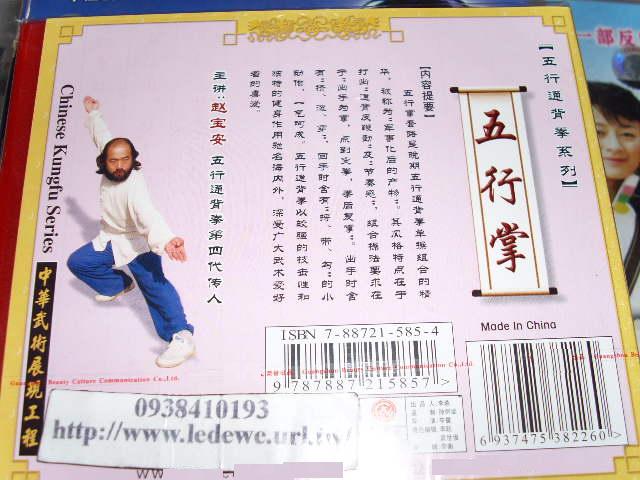 【五行通背拳系列】
五行掌
【内容提要】
五行掌套路是晚期五行通背拳单操组合的精
华，被称为"军事化后的产物"。其风格特点在于
打出"通背反弹劲"及"节奏感"，组合操法要求在
于"出手为掌，点到成拳，拳后复掌"。出手时含
有"摔、
回手时含有"捋、带、勾"的小
动作，一气呵成。五行通背拳以较强的技击性和
独特的健身作用驰名海内外，深受广大武术爱好
者的喜爱。
主讲：赵宝安 五行通背拳第四代传人
Chinese Kungfu Series
中華武術展現工程
ISBN 7-88721-585-4
9 787887 215857 >
Made In China
6 937475 382260 >
Guangzhou Beauty Culture Communication Co.,Ltd.
0938410193
http://www.ledewe.url.tw/
一部反